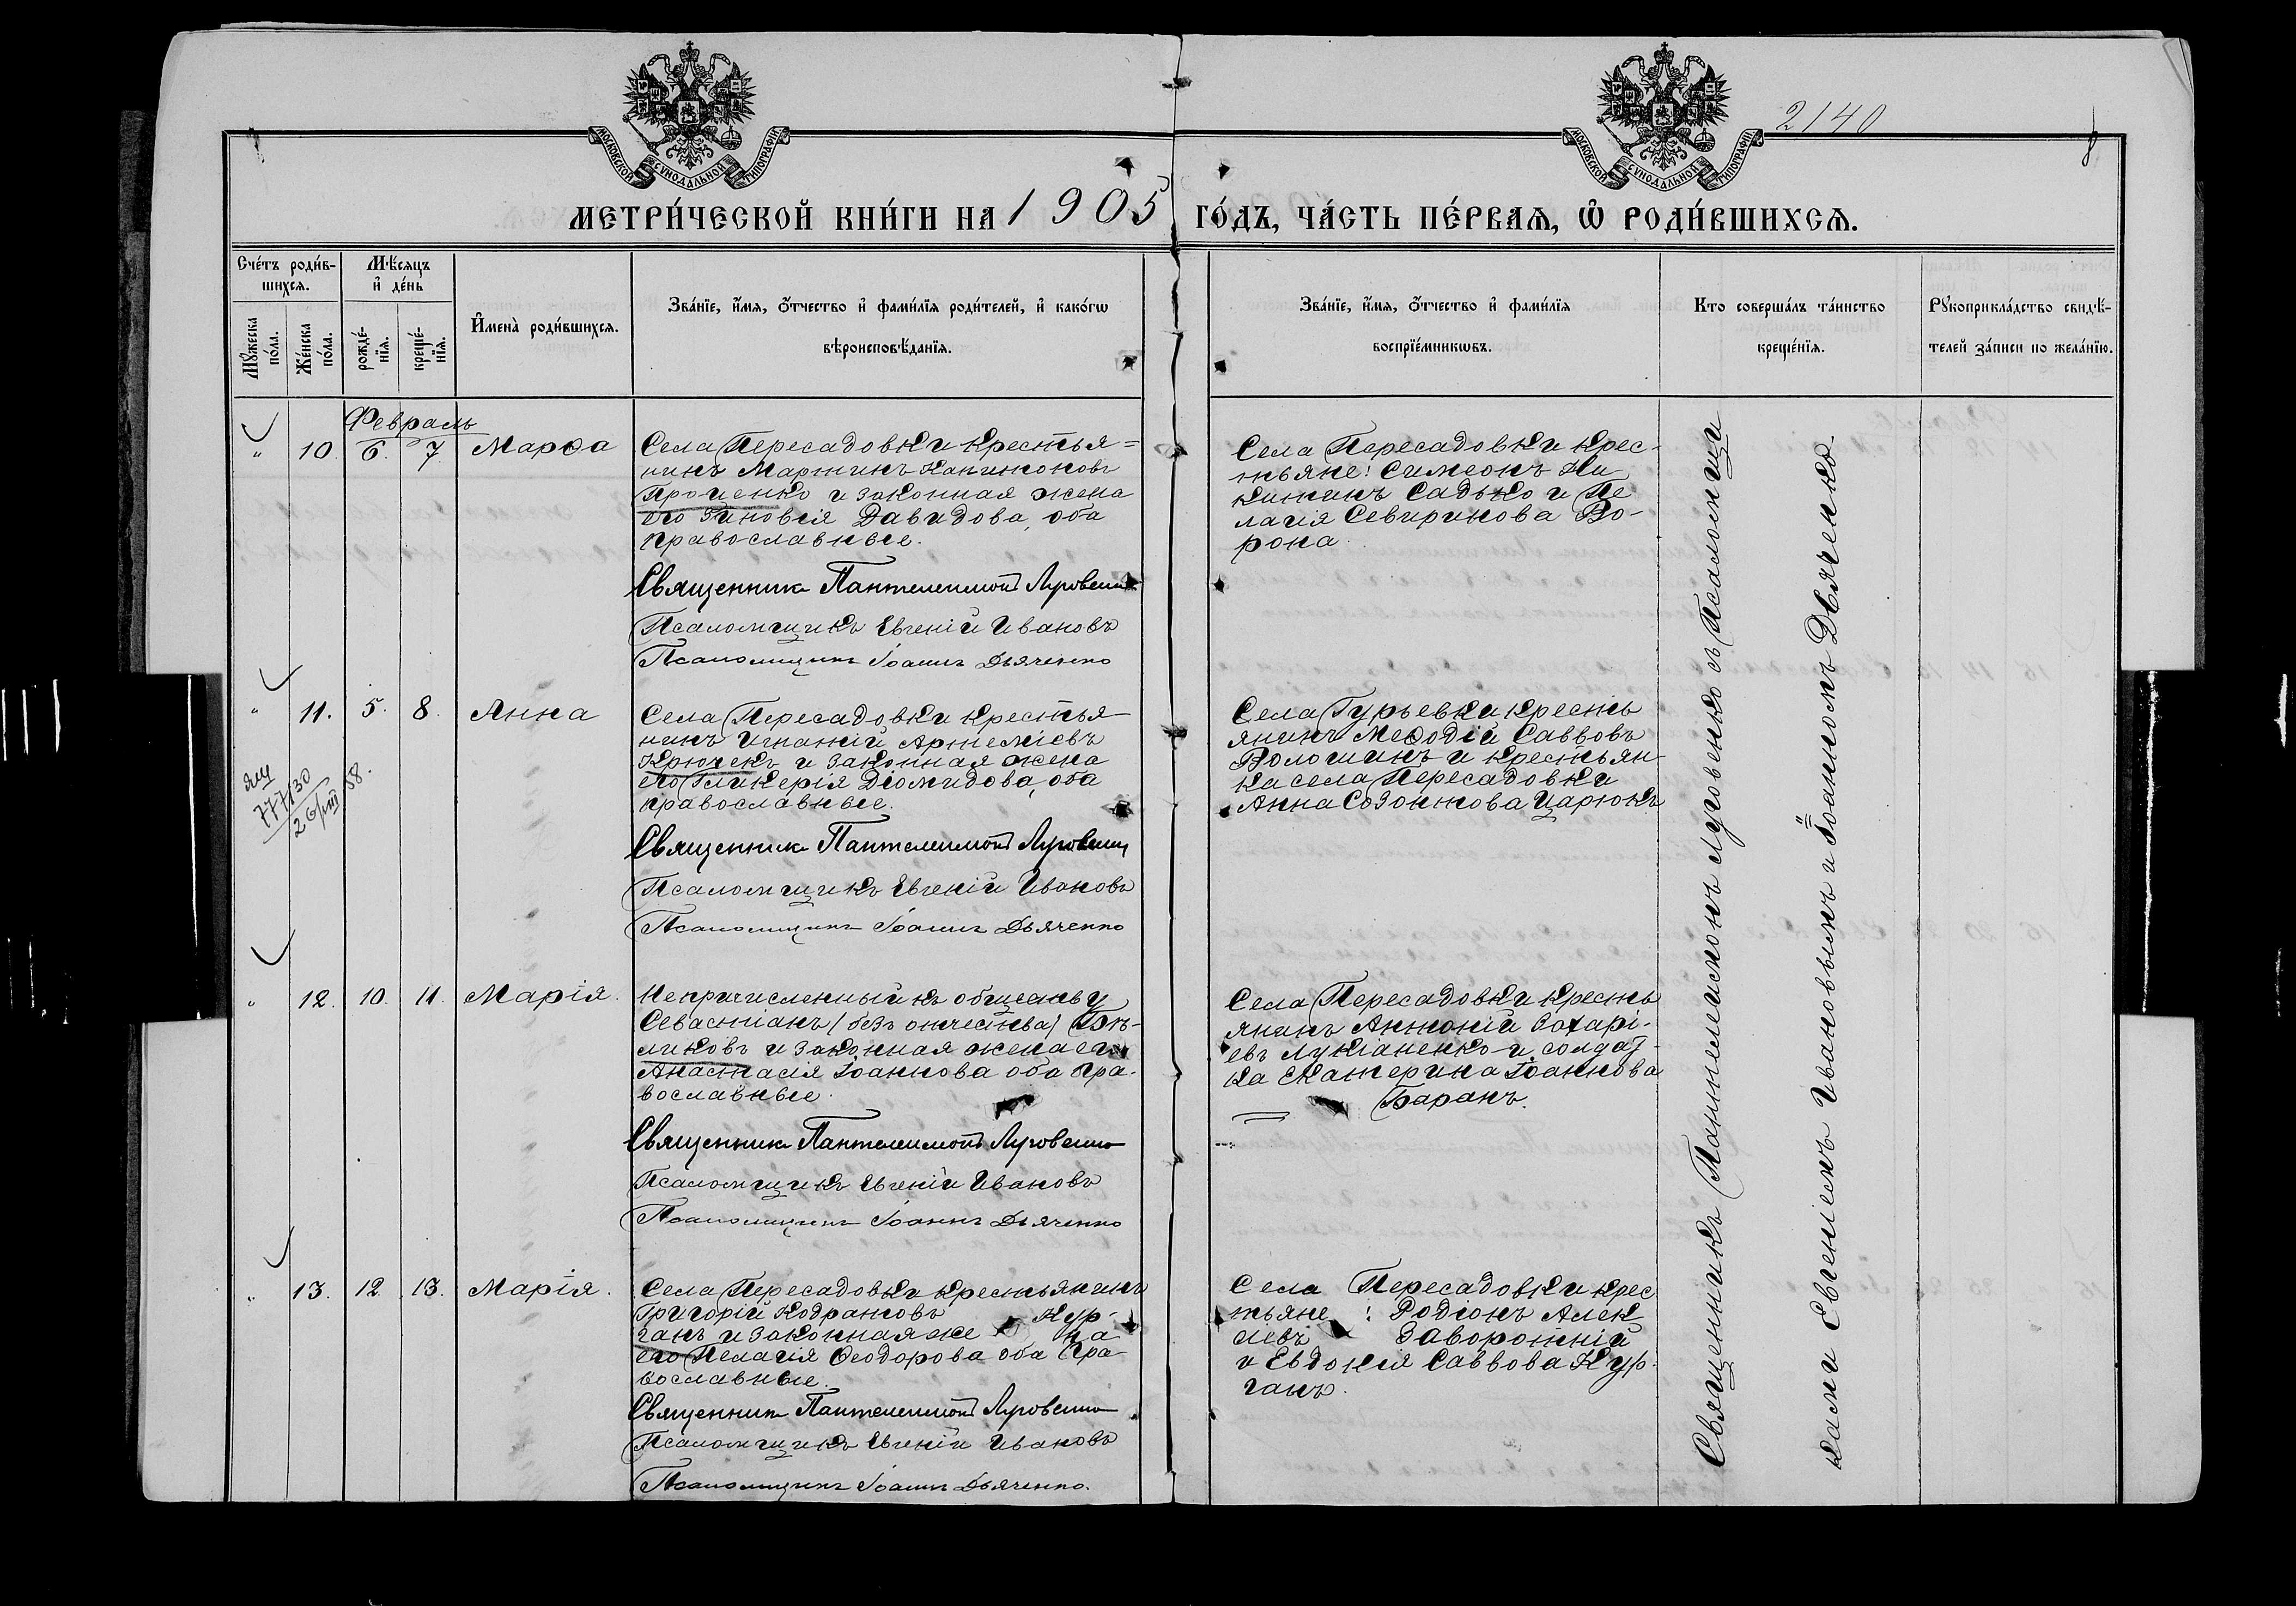 МОСКОВСКОЙ СѴНОДАЛЬНОЙ ТИПОГРАФІИ
МОСКОВСКОЙ СѴНОДАЛЬНОЙ ТИПОГРАФІИ
2140
МЕТРИ́ЧЕСКОЙ КНИ́ГИ НА 1905 ГО́ДЪ, ЧА́СТЬ ПЕ́РВАѦ, Ѡ҆ РОДИ́ВШИХСѦ.
Сче́тъ роди́в-
шихсѧ.
Мꙋ́жеска
по́ла.
Же́нска
по́ла.
Мѣ́сѧцъ
и҆ де́нь
рожде́-
нїѧ.
креще́-
нїѧ.
И҆мена̀ роди́вшихсѧ.
Зва́нїе, и҆́мѧ, ѻ҆́тчество и҆ фами́лїѧ роди́телей, и҆ како́гѡ
вѣроисповѣ́данїѧ.
Зва́нїе, и҆́мѧ, ѻ҆́тчество и҆ фами́лїѧ
воспрїе́мникѡвъ.
Кто соверша́лъ та́инство
креще́нїѧ.
Рꙋкоприкла́дство свидѣ́-
телей за́писи по жела́нїю.
Февраль
" 10. 6. 7. Марѳа
Села Пересадовки крестья=
нинъ Мартинъ Капитоновъ
Проценко и законная жена
его Зиновія Давидова, оба
православные.
Священникъ Пантелеимонъ Луговенко
Псаломщикъ Евгеній Ивановъ
Псаломщикъ Іоаннъ Дьяченко
Села Пересадовки крес-
тьяне: Симеонъ Ни
китинъ Садько и Пе
лагія Севиринова Во-
рона.
" 11. 5. 8. Анна
Села Пересадовки крестья-
нинъ Игнатій Артеміевъ
Крючекъ и законная жена
его Гликерія Діомидова, оба
православные.
Священникъ Пантелеимонъ Луговенко
Псаломщикъ Евгеній Ивановъ
Псаломщикъ Іоаннъ Дьяченко
Села Гурьевки кресть
янинъ Меѳодій Савовъ
Волошинъ и крестьян-
ка села Пересадовки
Анна Созонтова Царюкъ
" 12. 10. 11. Марія.
Непричисленный къ обществу
Севастіанъ (безъ отчества) Бѣ-
ликовъ и законная жена его
Анастасія Іоаннова оба пра-
вославные.
Священникъ Пантелеимонъ Луговенко
Псаломщикъ Евгеній Ивановъ
Псаломщикъ Іоаннъ Дьяченко
Села Пересадовки кресть
янинъ Антоній Захарі-
евъ Лукіаненко и солдат-
ка Екатерина Іоаннова
Баранъ.
" 13. 12. 13. Марія.
Села Пересадовки крестьянинъ
Григорій Кодратовъ Кур-
ганъ и законная же на
его Пелагія Ѳеодорова оба пра
вославные.
Священникъ Пантелеимонъ Луговенко
Псаломщикъ Евгеній Ивановъ
Псаломщикъ Іоаннъ Дьяченко.
Села Пересадовки крес
тьяне: Родіонъ Алек
Заворотній
и Евдокія Саввова Кур-
ганъ.
Священникъ Пантелеимонъ Луговенко съ Псаломщи
ками Евгеніемъ Ивановымъ и Іоанномъ Дьяченко.